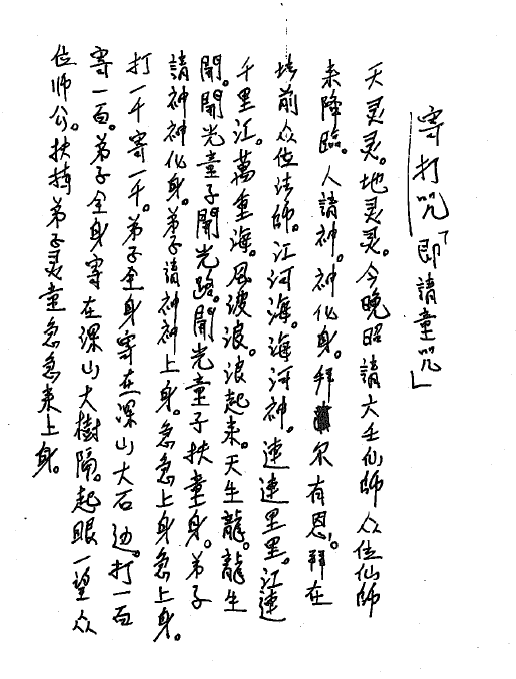 寄打咒「即請童咒」
天灵灵。地灵灵。今晚昭請六壬仙師众位仙師
来降臨。人請神。神化身。拜尔有恩。拜在
坛前众位法師。江河海。海河神。連連里里。江連
千里江。萬重海。风波波。浪起来。天生龍。龍生
開。開光童子開光路。開光童子扶童身。弟子
請神神化身。弟子請神神上身。急急上身急上身。
打一千寄一千。弟子全身寄在深山大石边。打一百
寄一百。弟子全身寄在深山大樹隔。起眼一望众
位师公。扶持弟子灵童急急来上身。